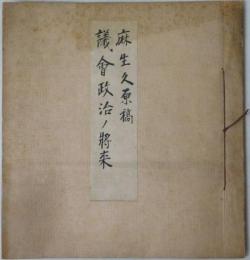 麻生久原稿
議会政治ノ將来